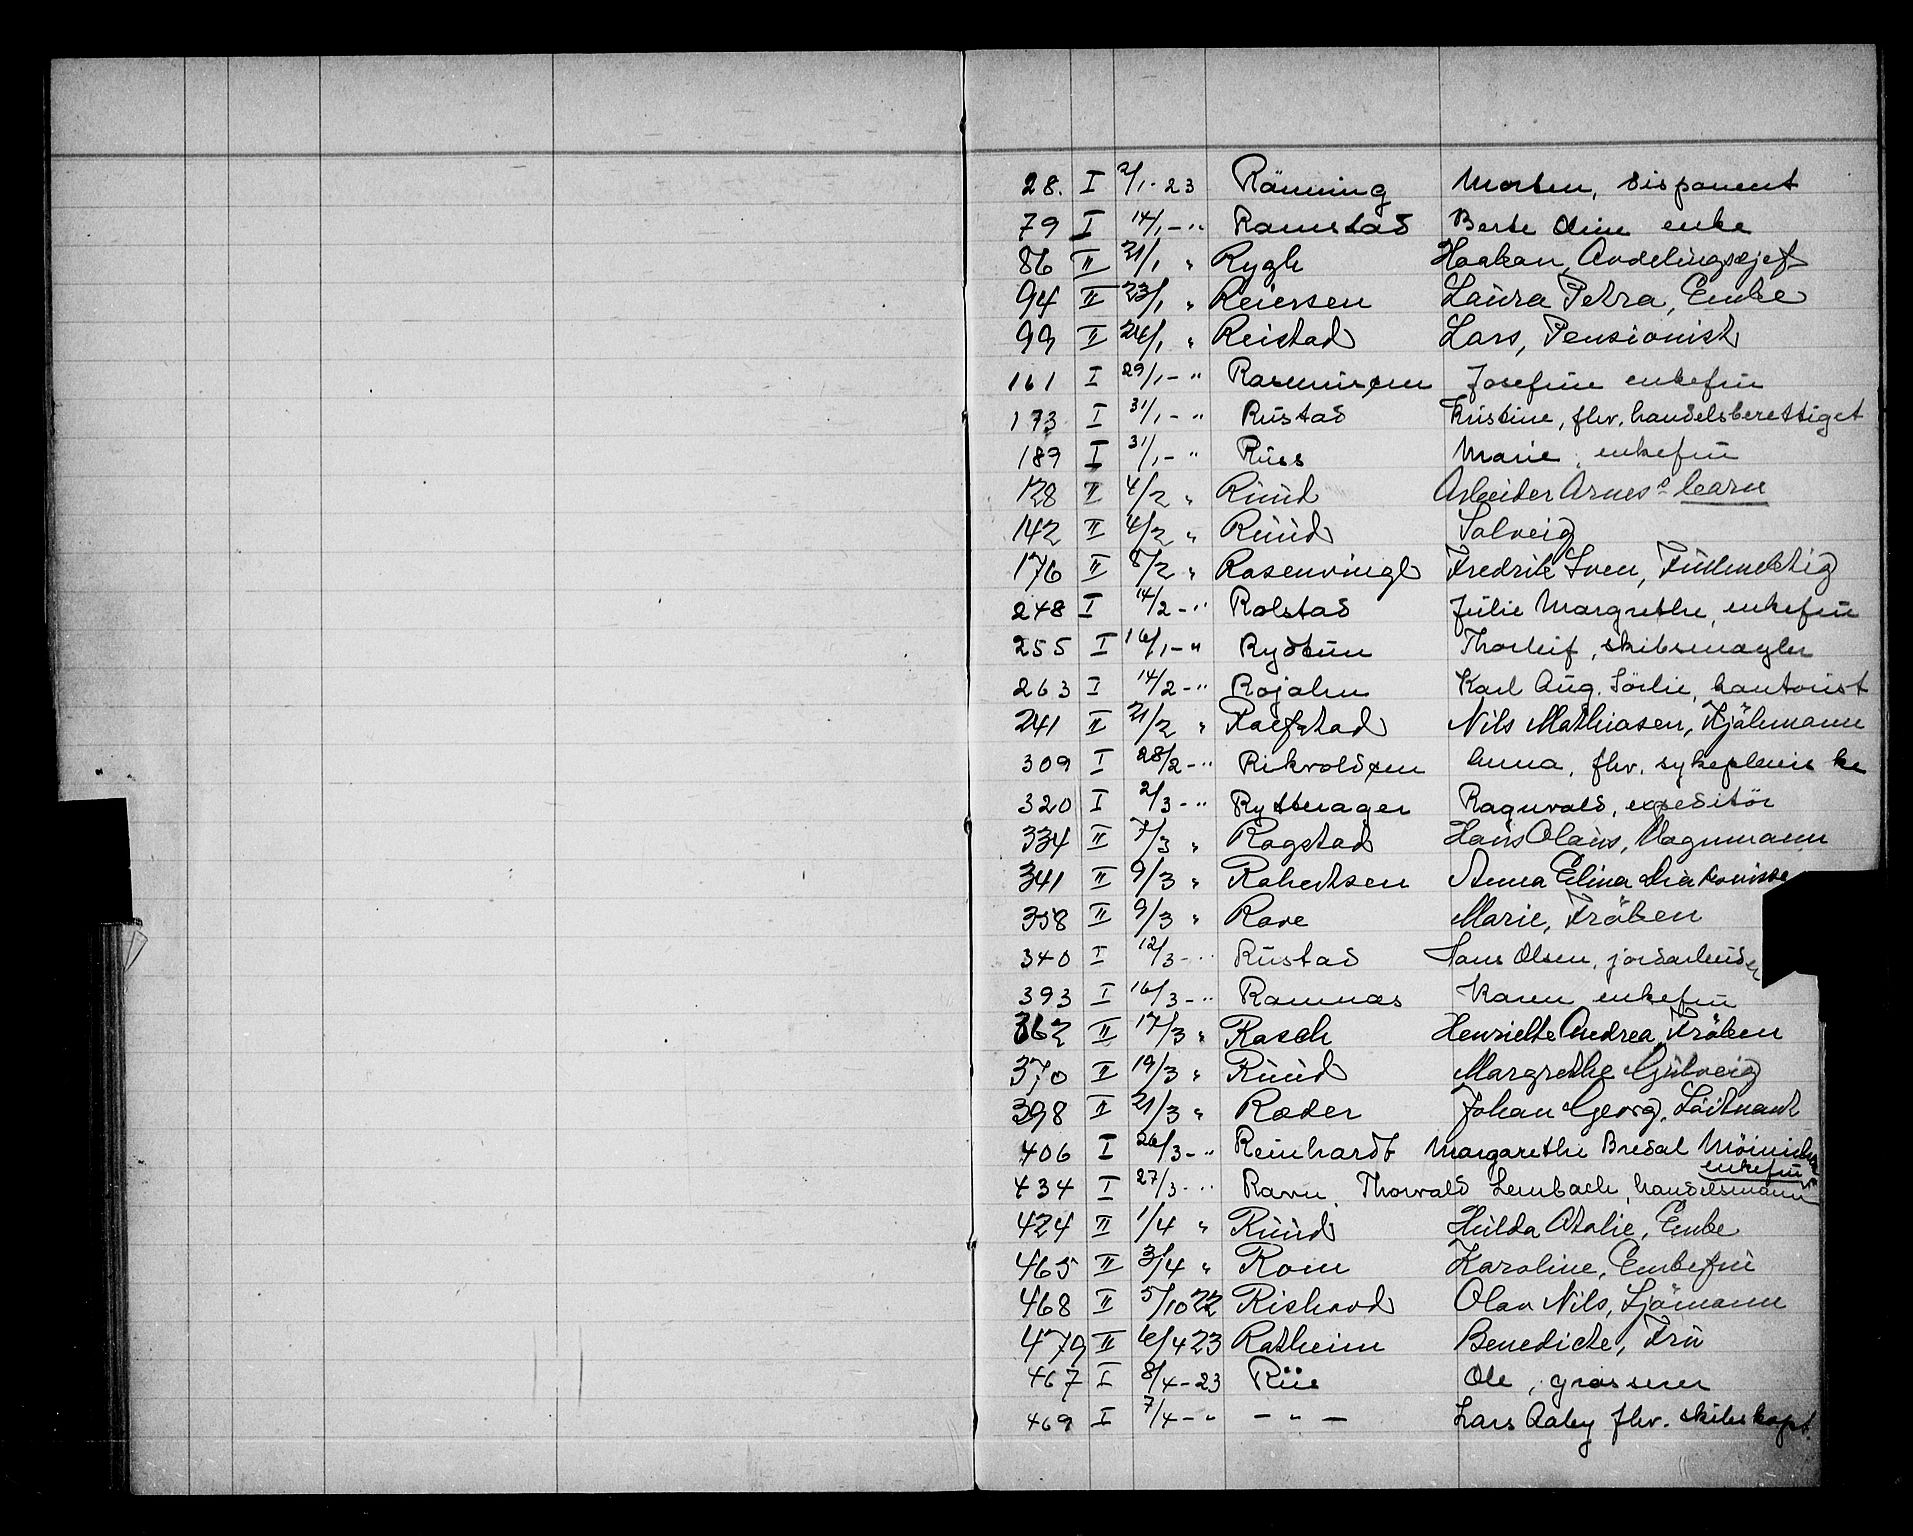 28. I 2/1-23 Rönning Morten, disponent
79 I 14/1-" Ramstad Berte Oline enke
86 II 21/1 " Rygh Haakon, Avdelingssjef
94 II 23/1 " Reiersen Laura Petra, Enke
99 II 24/1 " Reistad Lars, Pensionist
161 I 29/1-" Rasmussen Josefine enkefru
173 I 31/1-" Rustad Kristine, fhv. handelsberettiget
189 I 31/1-" Russ Marie, enkefru
128 II 4/2 " Ruud Arbeider Arnes barn
142 II 4/2 " Ruud Solveig
176 II 8/2 " Rosenvinge Fredrik Sven, Fuldmektig
248 I 14/2-" Rolstad Julie Margrethe, enkefru
255 I 16/1-" Rydtun Thorleif, skibsmægler
263 I 14/2-" Rojahn Karl Aug. Sörlie, kontorist
241 II 21/2 " Ralfstad Nils Mathiasen, Kjöhmann
309 I 28/2-" Rikvoldsen Anna, fhv. sykepleierske
320 I 2/3-" Rytterager Ragnvald, expeditör
334 II 7/3 " Rogstad Hans Olaus, Vognmann
341 II 9/3 " Robertsen Anna Elina diakonisse
358 II 9/3 " Rove Marie, Fröken
340 I 12/3-" Rustad Hans Olsen, jordarbeider
393 I 16/3-" Ramnæs Karen enkefru
362 II 17/3 " Rasch Henriette Andrea, Fröken
370 II 19/3 " Ruud Margrethe Gjulveig
398 II 21/3 " Ræder Johan Georg, Löitnant
406 I 26/3-" Reinhardt Margarethe Bredal Möinichen
enkefru
434 I 27/3-" Ravn, Thorvald Lembach, handelsmann
424 II 1/4 " Ruud Hulda Atalie, Enke
465 II 3/4 " Rom Karoline, Enkefru
468 II 5/10 22 Rishovd Olav Nils, Sjömann
479 II 6/4 23 Ratheim Benedicte, Fru
467 I 8/4-23 Rue Ole, grosserer
469 I 7/4-" - " - Lars Aaby fhv. skibskapt.